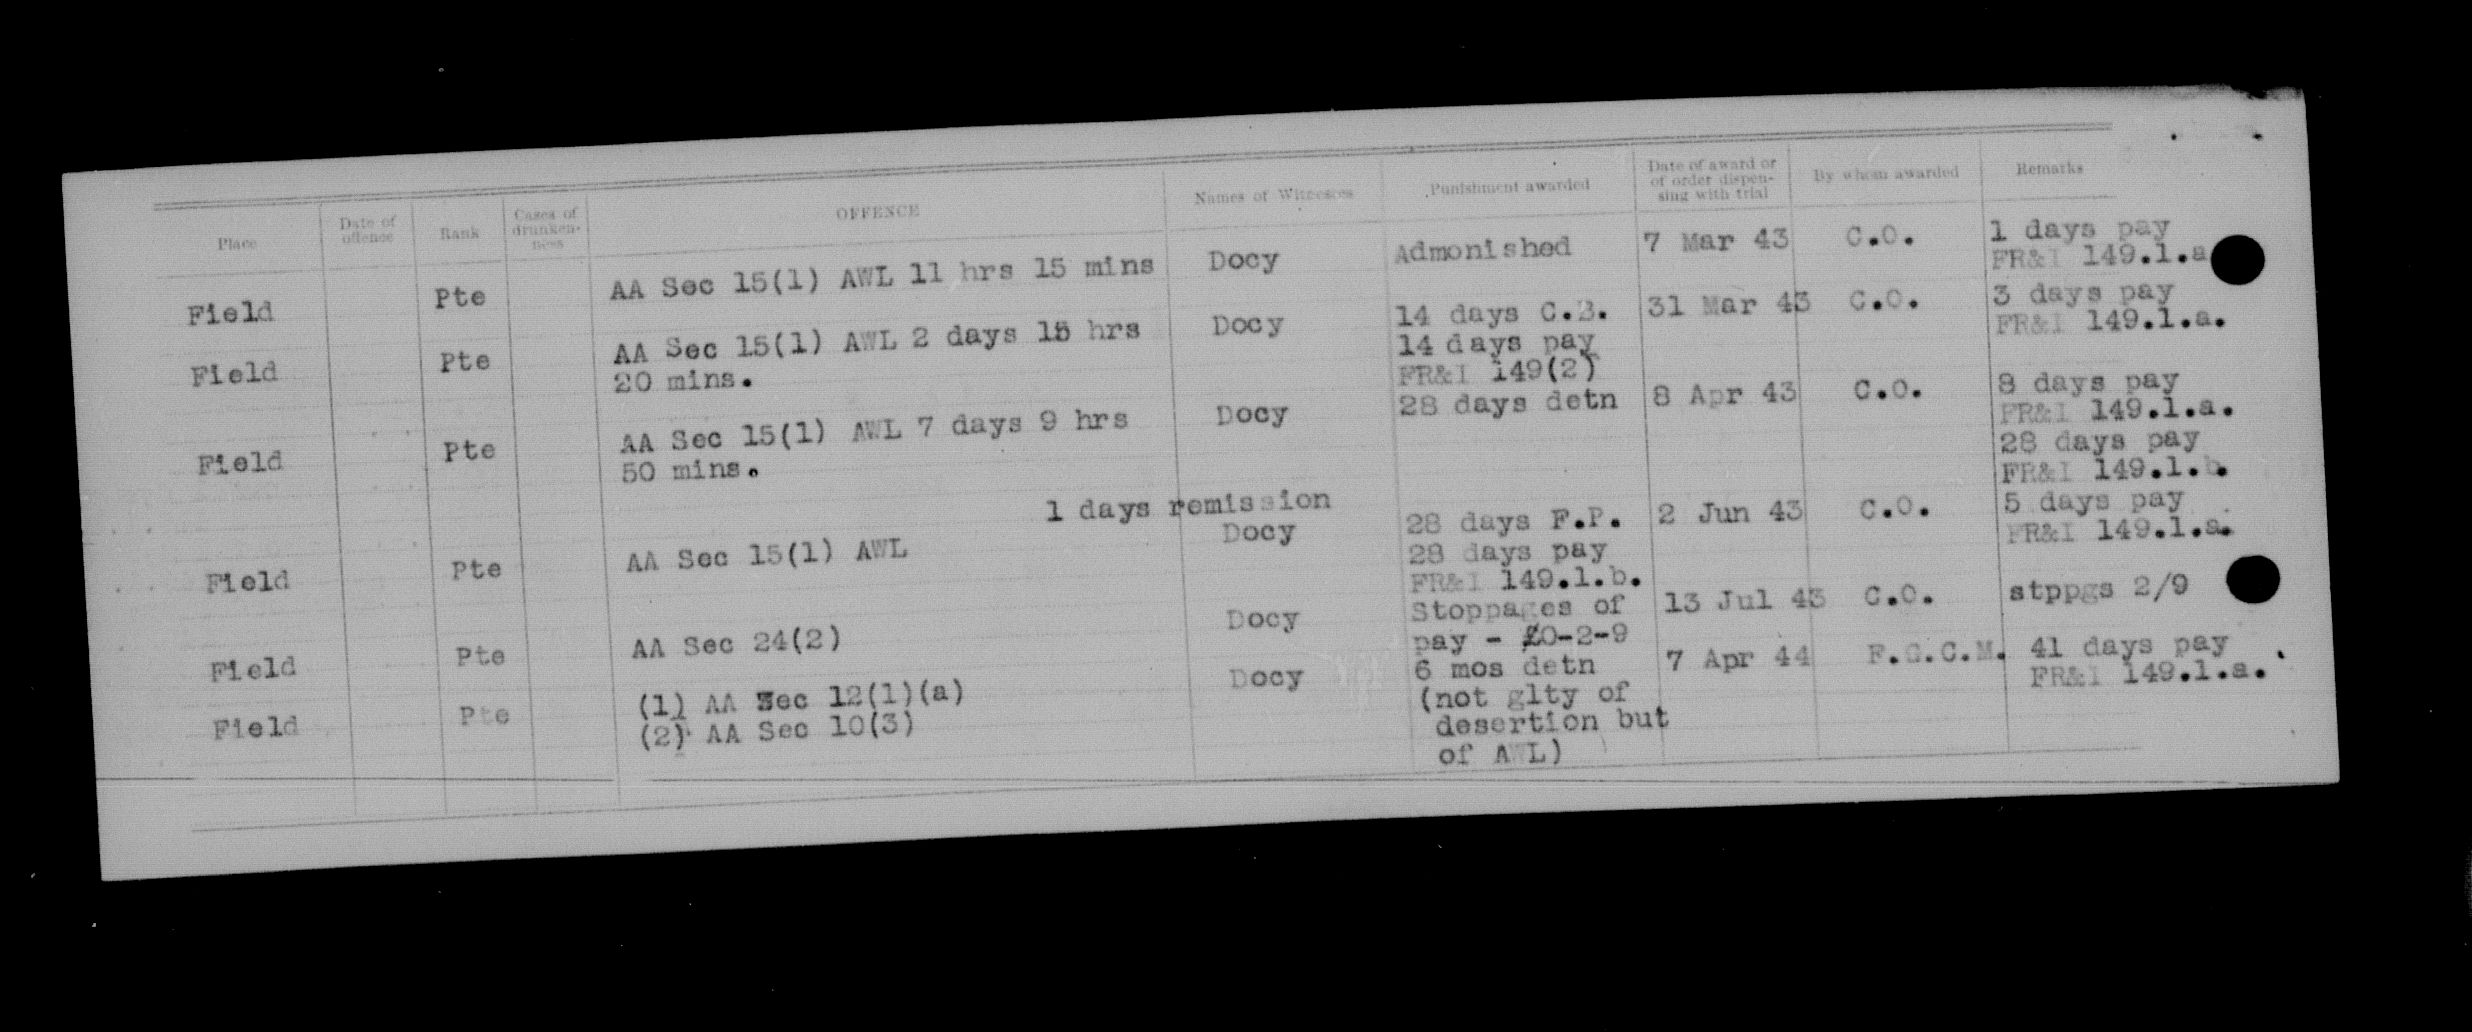 Place Date of offence Rank Cases of drunken-ness OFFENCE Names of Witnesses Punishment awarded Date of award or of order dispen-sing with trial By whom awarded Remarks
Field Pte AA Sec 15(1) AWL 11 hrs 15 mins Docy Admonished 7 Mar 43 C.O. 1 days pay
FR&I 149.1.a
Field Pte AA Sec 15(1) AWL 2 days 18 hrs Docy 14 days C.B. 31 Mar 43 C.O. 3 days pay
20 mins. 14 days pay FR&I 149.1.a.
FR&I 149(2)
Field Pte AA Sec 15(1) AWL 7 days 9 hrs Docy 28 days detn 8 Apr 43 C.O. 8 days pay
50 mins. FR&I 149.1.a.
28 days pay
FR&I 149.1.b.
1 days remission
Field Pte AA Sec 15(1) AWL Docy 28 days F.P. 2 Jun 43 C.O. 5 days pay
28 days pay FR&I 149.1.a.
FR&I 149.1.b.
Field Pte AA Sec 24(2) Docy Stoppages of 13 Jul 43 C.O. stppgs 2/9
pay - £0-2-9
Field Pte (1) AA Sec 12(1)(a) Docy 6 mos detn 7 Apr 44 F.G.C.M. 41 days pay
(2) AA Sec 10(3) (not glty of FR&I 149.1.a.
desertion but
of AWL)